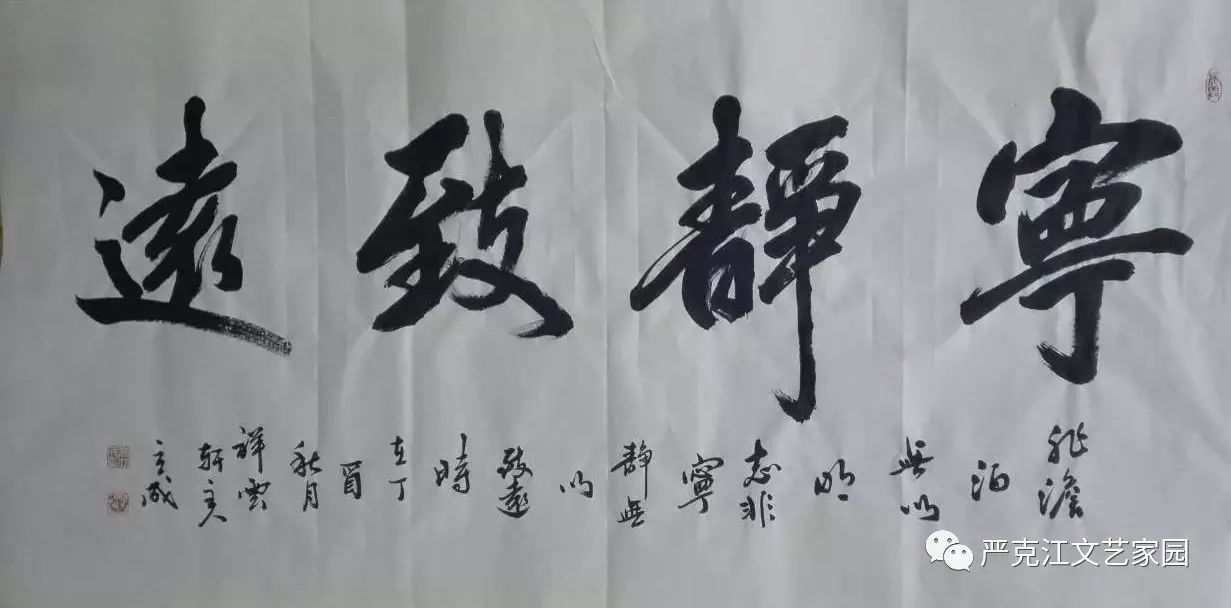 寧靜致遠
非澹
泊
無以
明
志非
寧
靜無
以
致遠
時
在丁
酉
秋月
祥雲
軒主
成
严克江文艺家园